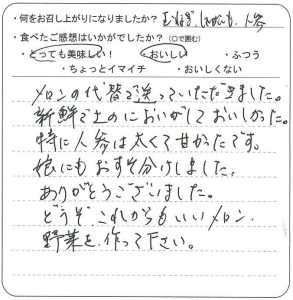 ・何をお召し上がりになりましたか？ 玉ねぎ じゃがいも、人参
・食べたご感想はいかがでしたか？（○で囲む）
・とっても美味しい！ ・おいしい ・ふつう
・ちょっとイマイチ ・おいしくない
メロンの代替で送っていただきました。
新鮮で土のにおいがしておいしかった。
特に人参は太くて甘かったです。
娘にもおすそ分けしました。
ありがとうございました。
どうぞこれからもいいメロン、
野菜を作って下さい。